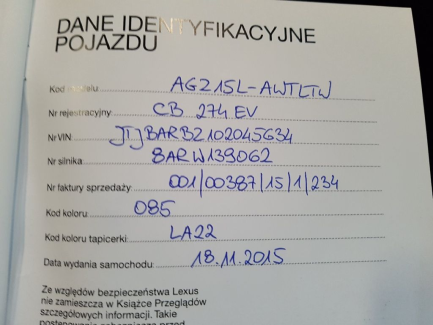 DANE IDENTYFIKACYJNE
POJAZDU
Kod modelu AGZ15L-AWTLTW
Nr rejestracyjny CB 274EV
Nr VIN JTJBARBZ102045634
Nr silnika 8ARW139062
Nr faktury sprzedaży 001/00387/15/1/234
Kod koloru 085
Kod koloru tapicerki LA22
Data wydania samochodu 18.11.2015
Ze względów bezpieczeństwa Lexus
nie zamieszcza w Książce Przeglądów
szczegółowych informacji. Takie